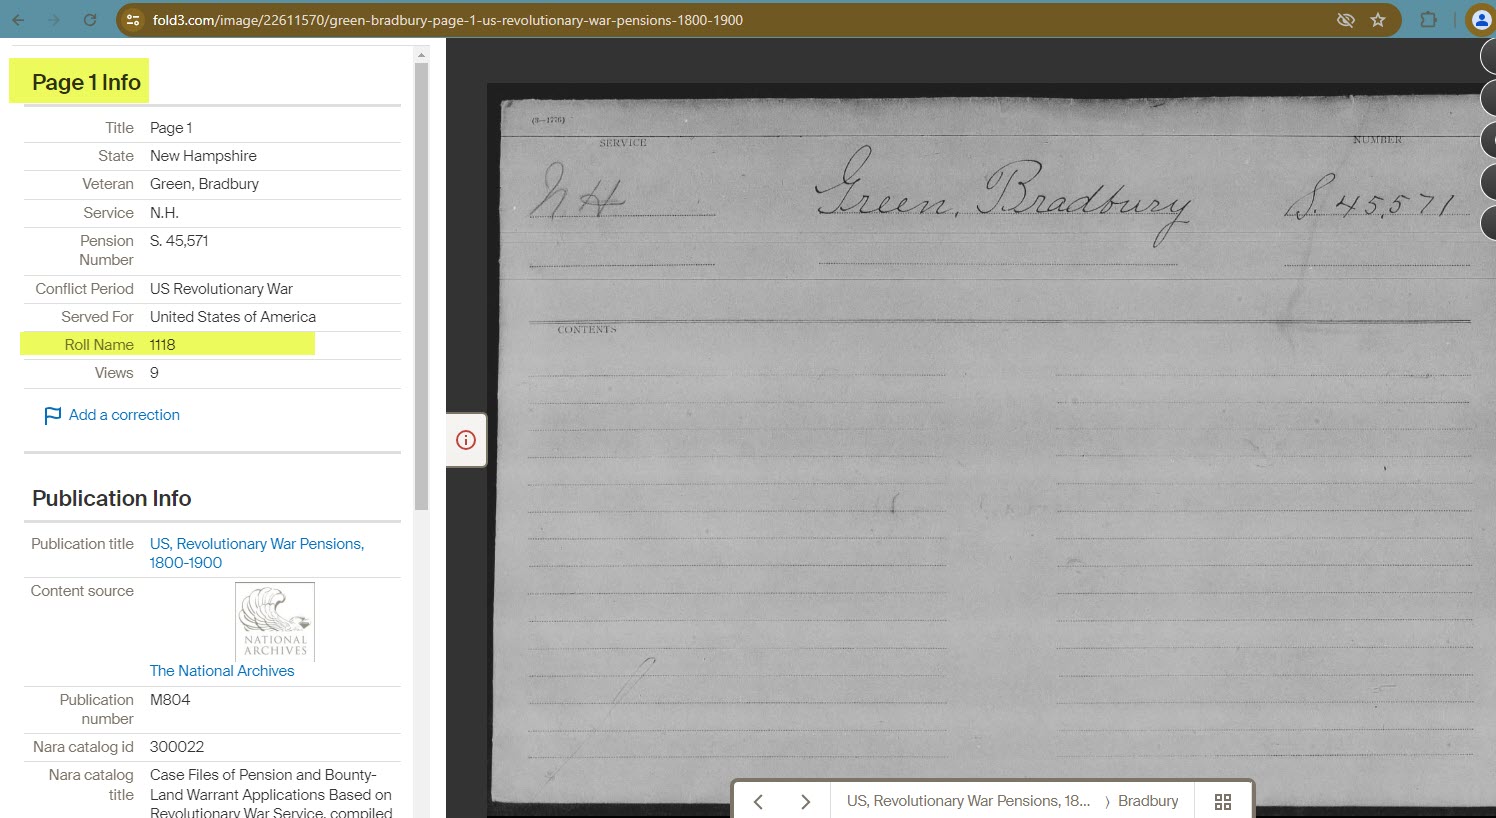 fold3.com/image/22611570/green-bradbury-page-1-us-revolutionary-war-pensions-1800-1900
Page 1 Info
Title Page 1
State New Hampshire
Veteran Green, Bradbury
Service N.H.
Pension Number S. 45,571
Conflict Period US Revolutionary War
Served For United States of America
Roll Name 1118
Views 9
Add a correction
Publication Info
Publication title US, Revolutionary War Pensions,
1800-1900
Content source
NATIONAL
ARCHIVES
The National Archives
Publication number M804
Nara catalog id 300022
Nara catalog title Case Files of Pension and Bounty-
Land Warrant Applications Based on
Revolutionary War Service, compiled
(3—1776)
SERVICE
NUMBER
NH Green, Bradbury S. 45,571
CONTENTS
US, Revolutionary War Pensions, 18... › Bradbury